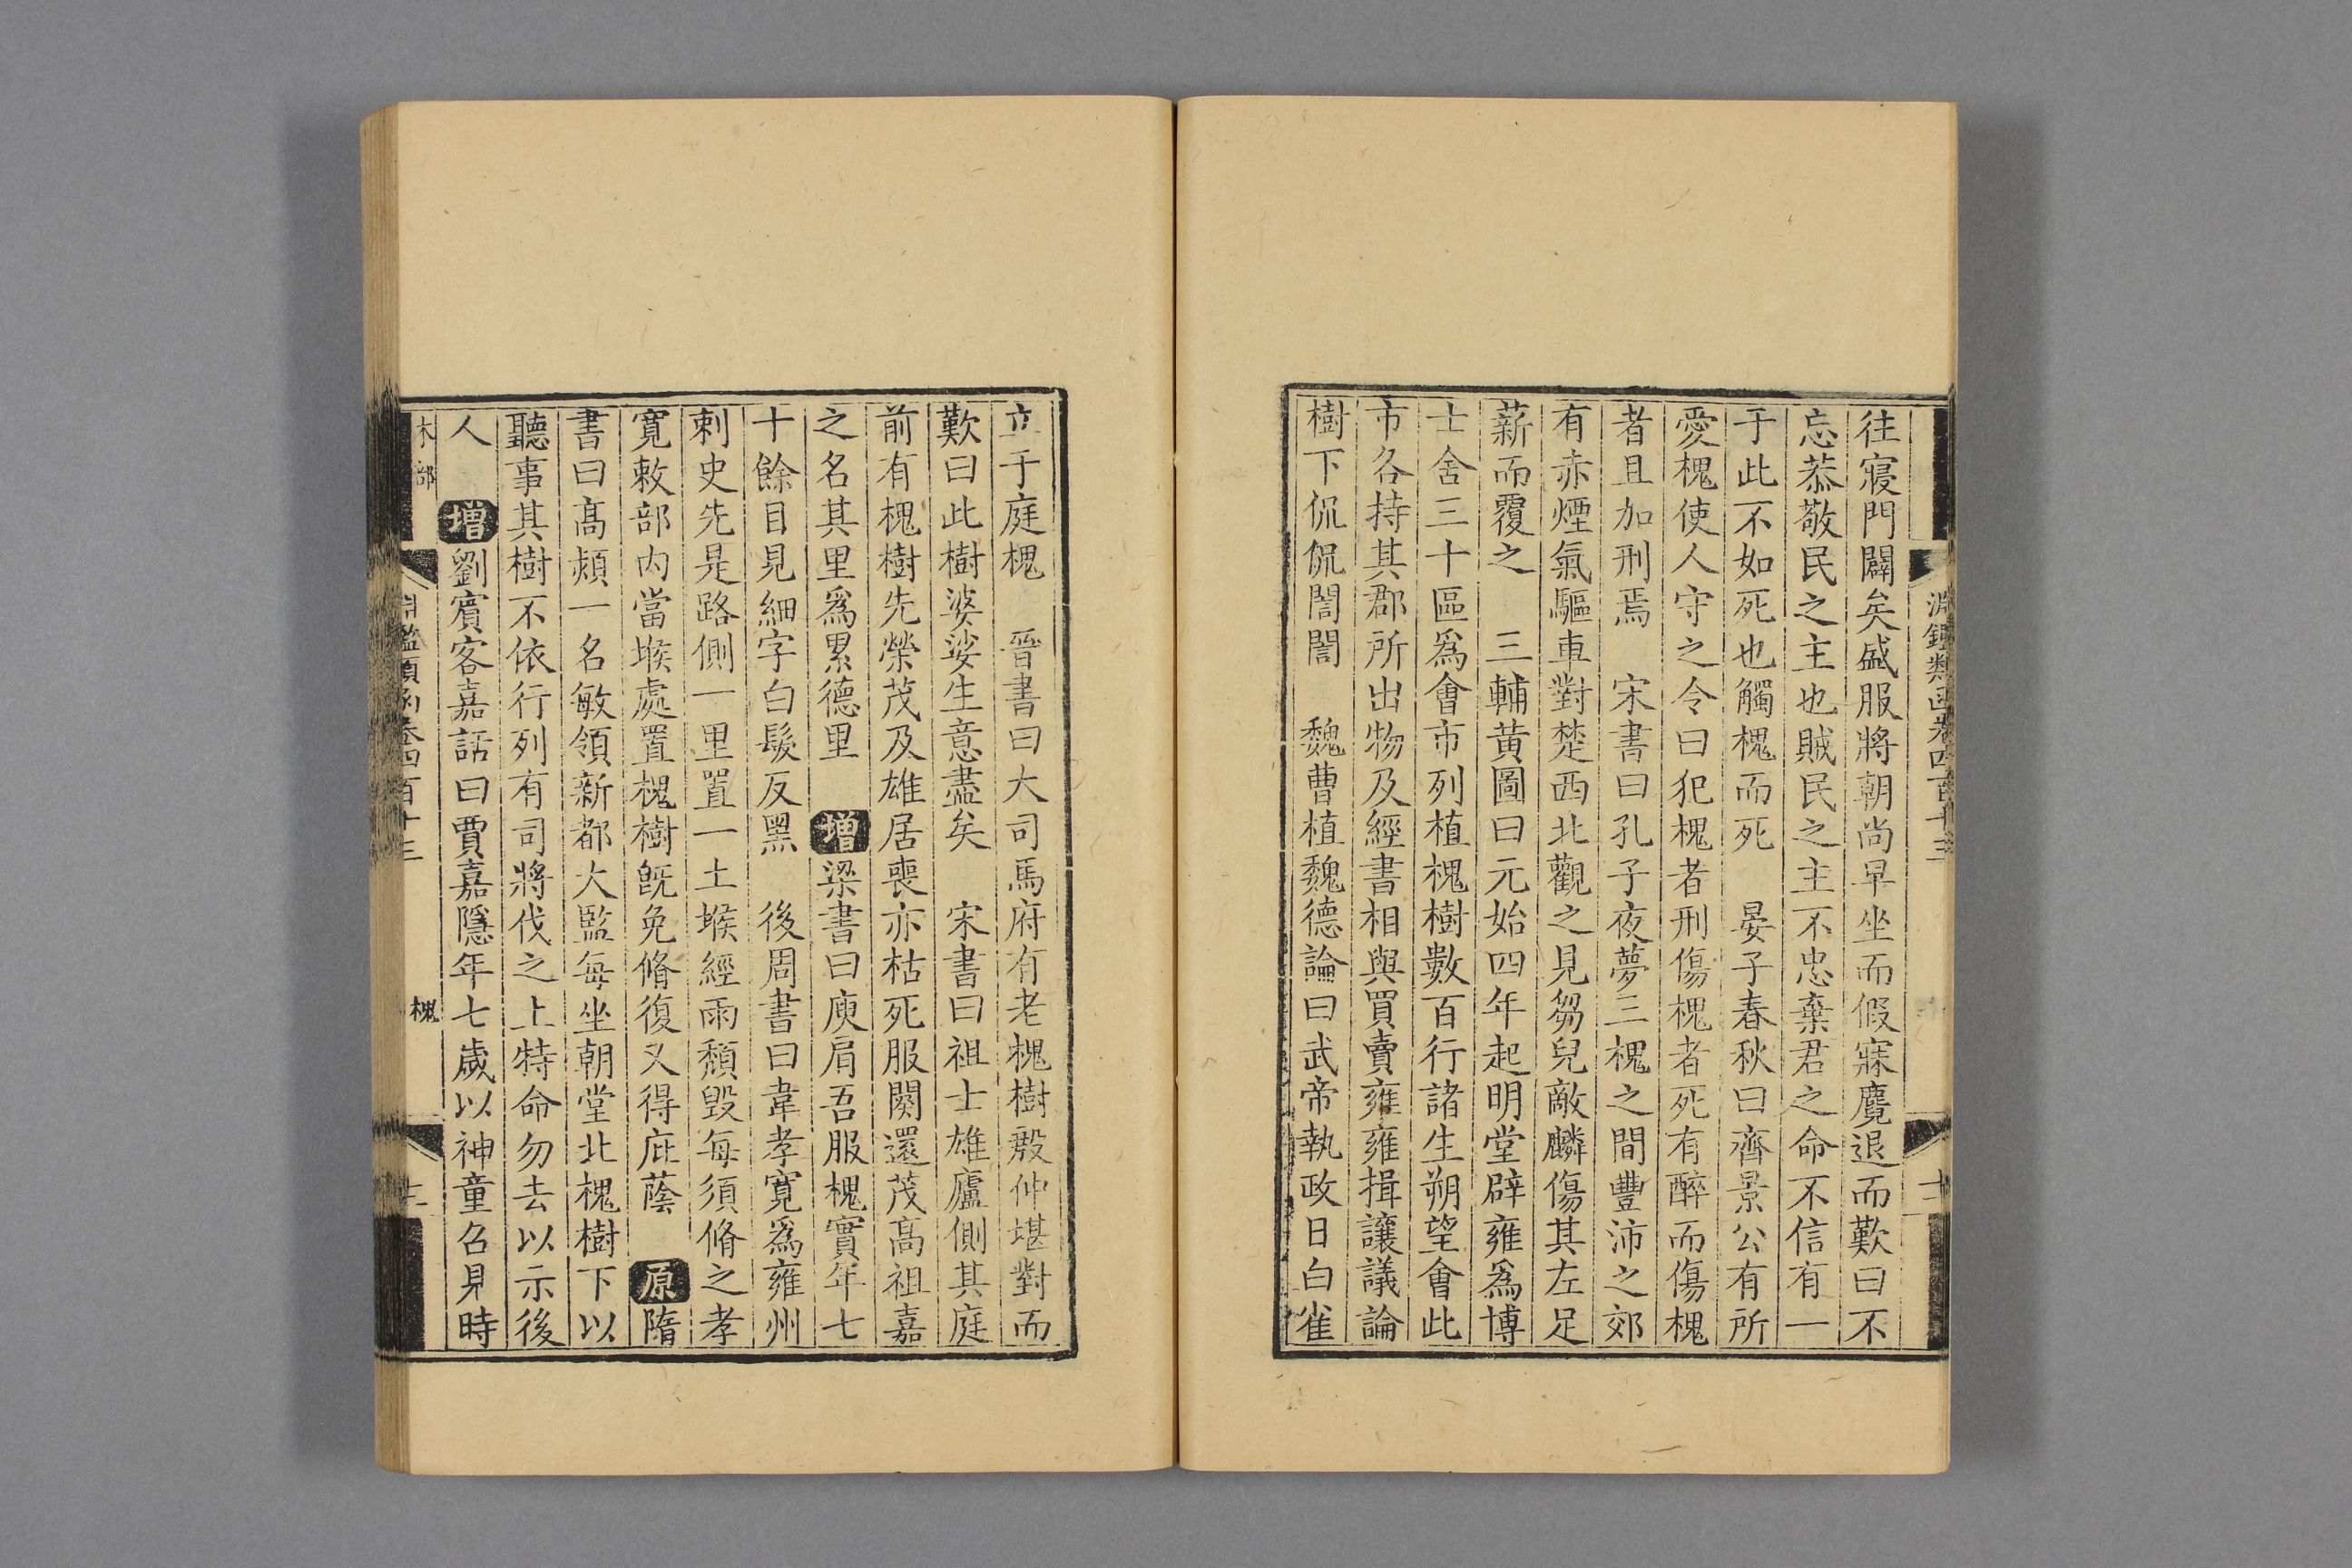 淵鑑類函卷四百十三
往寢門闢矣盛服將朝尚早坐而假寐麑退而歎曰不
忘恭敬民之主也賊民之主不忠棄君之命不信有一
于此不如死也觸槐而死　晏子春秋曰齊景公有所
愛槐使人守之令曰犯槐者刑傷槐者死有醉而傷槐
者且加刑焉　宋書曰孔子夜夢三槐之間豐沛之郊
有赤煙氣驅車對楚西北觀之見芻兒敵麟傷其左足
薪而覆之　三輔黃圖曰元始四年起明堂辟雍爲博
士舍三十區爲會市列植槐樹數百行諸生朔望會此
市各持其郡所出物及經書相與買賣雍雍揖讓議論
樹下侃侃誾誾　魏曹植魏德論曰武帝執政日白雀
立于庭槐　晉書曰大司馬府有老槐樹殷仲堪對而
歎曰此樹婆娑生意盡矣　宋書曰祖士雄廬側其庭
前有槐樹先榮茂及雄居喪亦枯死服闋還茂高祖嘉
之名其里爲累德里　增梁書曰庾肩吾服槐實年七
十餘目見細字白髮反黑　後周書曰韋孝寬爲雍州
刺史先是路側一里置一土堠經雨頹毀每須脩之孝
寬敕部內當堠處置槐樹旣免脩復又得庇蔭　原隋
書曰高熲一名敏領新都大監每坐朝堂北槐樹下以
聽事其樹不依行列有司將伐之上特命勿去以示後
人　增劉賓客嘉話曰賈嘉隱年七歲以神童召見時
木部　淵鑑類函卷四百十三　槐